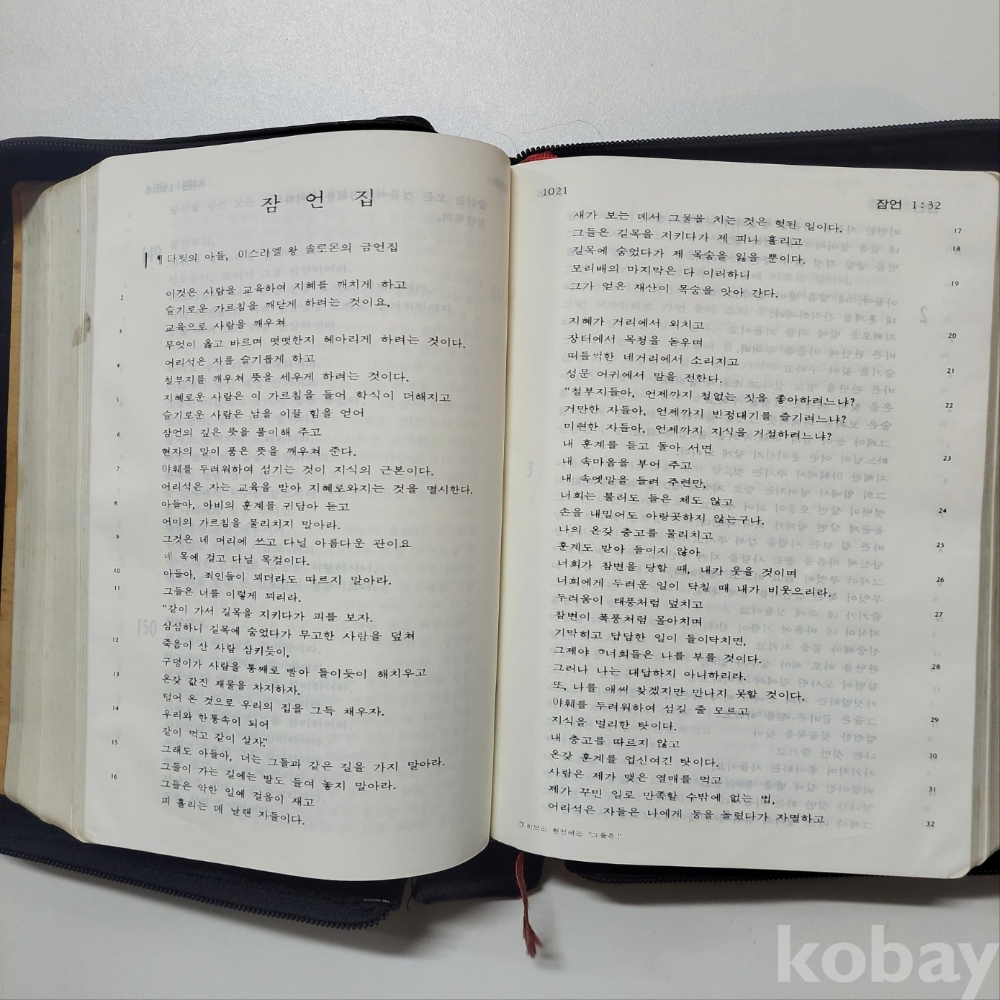 잠 언 집
1 ¶ 다윗의 아들, 이스라엘 왕 솔로몬의 금언집
2 이것은 사람을 교육하여 지혜를 깨치게 하고
슬기로운 가르침을 깨닫게 하려는 것이요,
3 교육으로 사람을 깨우쳐
무엇이 옳고 바르며 떳떳한지 헤아리게 하려는 것이다.
4 어리석은 자를 슬기롭게 하고
철부지를 깨우쳐 뜻을 세우게 하려는 것이다.
5 지혜로운 사람은 이 가르침을 들어 학식이 더해지고
슬기로운 사람은 남을 이끌 힘을 얻어
6 잠언의 깊은 뜻을 풀이해 주고
현자의 말이 품은 뜻을 깨우쳐 준다.
7 야훼를 두려워하여 섬기는 것이 지식의 근본이다.
어리석은 자는 교육을 받아 지혜로와지는 것을 멸시한다.
8 아들아, 아비의 훈계를 귀담아 듣고
어미의 가르침을 물리치지 말아라.
9 그것은 네 머리에 쓰고 다닐 아름다운 관이요
네 목에 걸고 다닐 목걸이다.
10 아들아, 죄인들이 꾀더라도 따르지 말아라.
11 그들은 너를 이렇게 꾀리라.
"같이 가서 길목을 지키다가 피를 보자.
심심하니 길목에 숨었다가 무고한 사람을 덮쳐
12 죽음이 산 사람 삼키듯이,
구덩이가 사람을 통째로 받아 들이듯이 해치우고
13 온갖 값진 재물을 차지하자.
털어 온 것으로 우리의 집을 그득 채우자.
14 우리와 한통속이 되어
같이 먹고 같이 살자."
15 그래도 아들아, 너는 그들과 같은 길을 가지 말아라.
그들이 가는 길에는 발도 들여 놓지 말아라.
16 그들은 악한 일에 걸음이 재고
피 흘리는 데 날랜 자들이다.
1021
잠언 1:32
새가 보는 데서 그물을 치는 것은 헛된 일이다. 17
그들은 길목을 지키다가 제 피나 흘리고 18
길목에 숨었다가 제 목숨을 잃을 뿐이다.
모리배의 마지막은 다 이러하니 19
그가 얻은 재산이 목숨을 앗아 간다.
지혜가 거리에서 외치고 20
장터에서 목청을 돋우며
떠들썩한 네거리에서 소리치고 21
성문 어귀에서 말을 전한다.
"철부지들아, 언제까지 철없는 짓을 좋아하려느냐? 22
거만한 자들아, 언제까지 빈정대기를 즐기려느냐?
미련한 자들아, 언제까지 지식을 거절하려느냐?
내 훈계를 듣고 돌아 서면 23
내 속마음을 부어 주고
내 속엣말을 들려 주련만,
너희는 불러도 들은 체도 않고 24
손을 내밀어도 아랑곳하지 않는구나.
나의 온갖 충고를 물리치고 25
훈계도 받아 들이지 않아
너희가 참변을 당할 때, 내가 웃을 것이며 26
너희에게 두려운 일이 닥칠 때 내가 비웃으리라.
두려움이 태풍처럼 덮치고 27
참변이 폭풍처럼 몰아치며
기막히고 답답한 일이 들이닥치면,
그제야 ㉠너희들은 나를 부를 것이다. 28
그러나 나는 대답하지 아니하리라.
또, 나를 애써 찾겠지만 만나지 못할 것이다.
야훼를 두려워하여 섬길 줄 모르고 29
지식을 멀리한 탓이다.
내 충고를 따르지 않고 30
온갖 훈계를 업신여긴 탓이다.
사람은 제가 맺은 열매를 먹고 31
제가 꾸민 일로 만족할 수밖에 없는 법,
어리석은 자들은 나에게 등을 돌렸다가 자멸하고 32
㉠ 히브리 원전에는 "그들은."
kobay